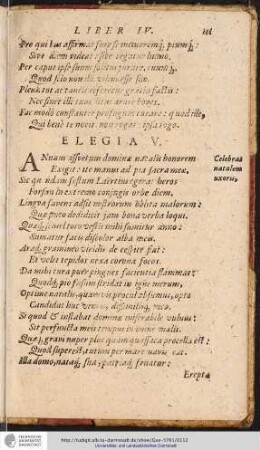 LIBER IV.
Pro qui has affirmat superesse
Sive idem videat
Per caput ipse suum solitus jurare, tuumq́;:
Quod scio non illi vilius esse suo.
Plena tot ac tantis referetur gratia factis:
Nec sinet ille tuos litus arare boves.
Fac modò constanter profugum tueare: quod ille,
Qui bene te novit, non rogat: ipsa rogo.
ELEGIA V.
ANnuum assuetum dominæ natalis honorem
Exigit: ite manus ad pia sacra meæ.
Sic quondam festum Laërtius egerat heros
Forsan in extremo conjugis orbe diem.
Lingua favens adsit nostrorum oblita malorum:
Quæ puto dedidicit jam bona verba loqui.
Quæq́; semel toto vestis mihi sumitur anno:
Sumatur fatis discolor alba meis.
Araq́; gramineo viridis de cespite fiat:
Et velet tepidos nexa corona focos.
Da mihi tura puer pingues facientia flammas:
Quodq́; pio fusum stridat in igne merum,
Optime natalis, quamvis procul absumus, opto
Candidus huc venias, dissimilisq́; meo.
Si quod & instabat dominæ miserabile vulnus:
Sit perfuncta meis tempus in omne malis.
Quæq́; gravi nuper plus quàm quassata procella est:
Quod superest, tutum per mare navis eat.
Illa domo, nataq́; sua, patriaq́; fruatur:
Erepta
Celebrat
natalem
uxoris,
http://tudigit.ulb.tu-darmstadt.de/show/Gue-5791/0112
Universitäts- und Landesbibliothek Darmstadt